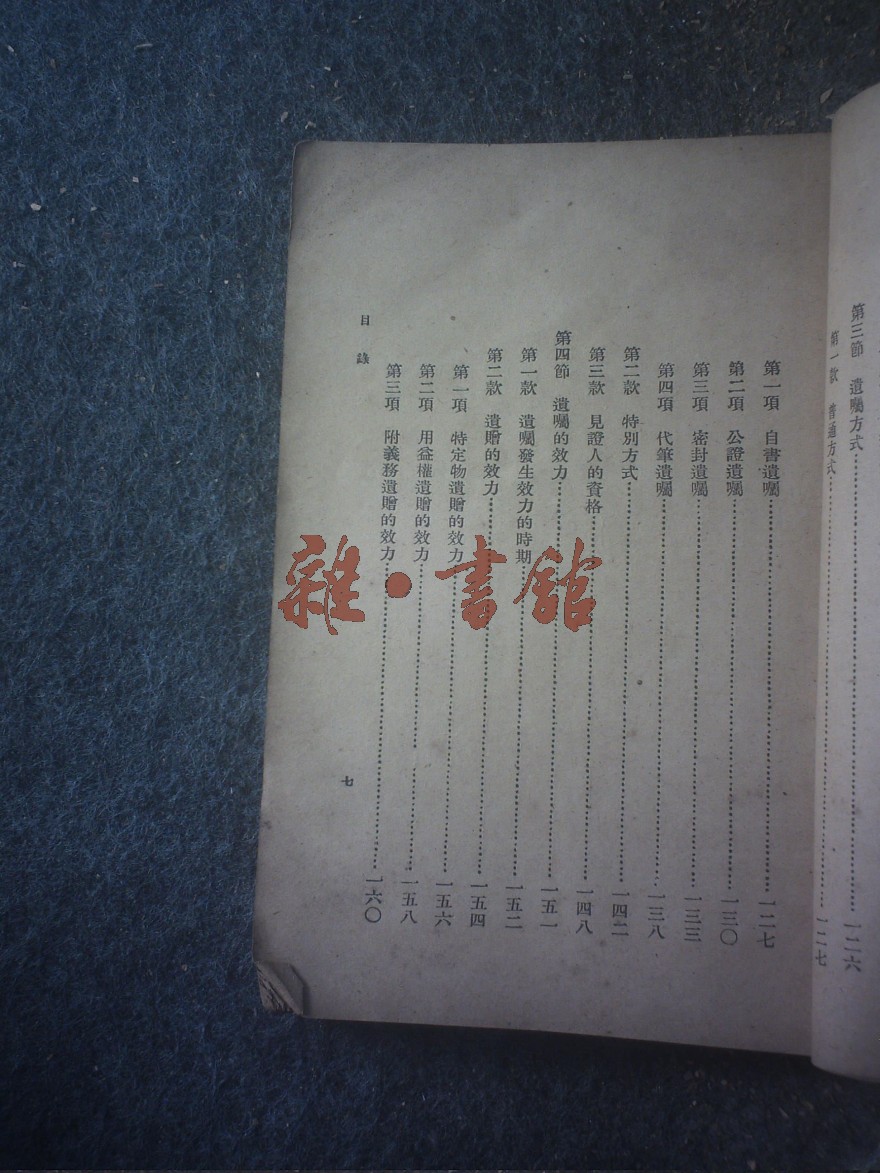 第三節　遺囑方式……一二六
第一款　普通方式……一二七
第一項　自書遺囑……一二七
第二項　公證遺囑……一三〇
第三項　密封遺囑……一三三
第四項　代筆遺囑……一三八
第二款　特別方式……一四二
第三款　見證人的資格……一四八
第四節　遺囑的效力……一五一
第一款　遺囑發生效力的時期……一五二
第二款　遺贈的效力……一五四
第一項　特定物遺贈的效力……一五六
第二項　用益權遺贈的效力……一五八
第三項　附義務遺贈的效力……一六〇
目錄
七
雜·書館